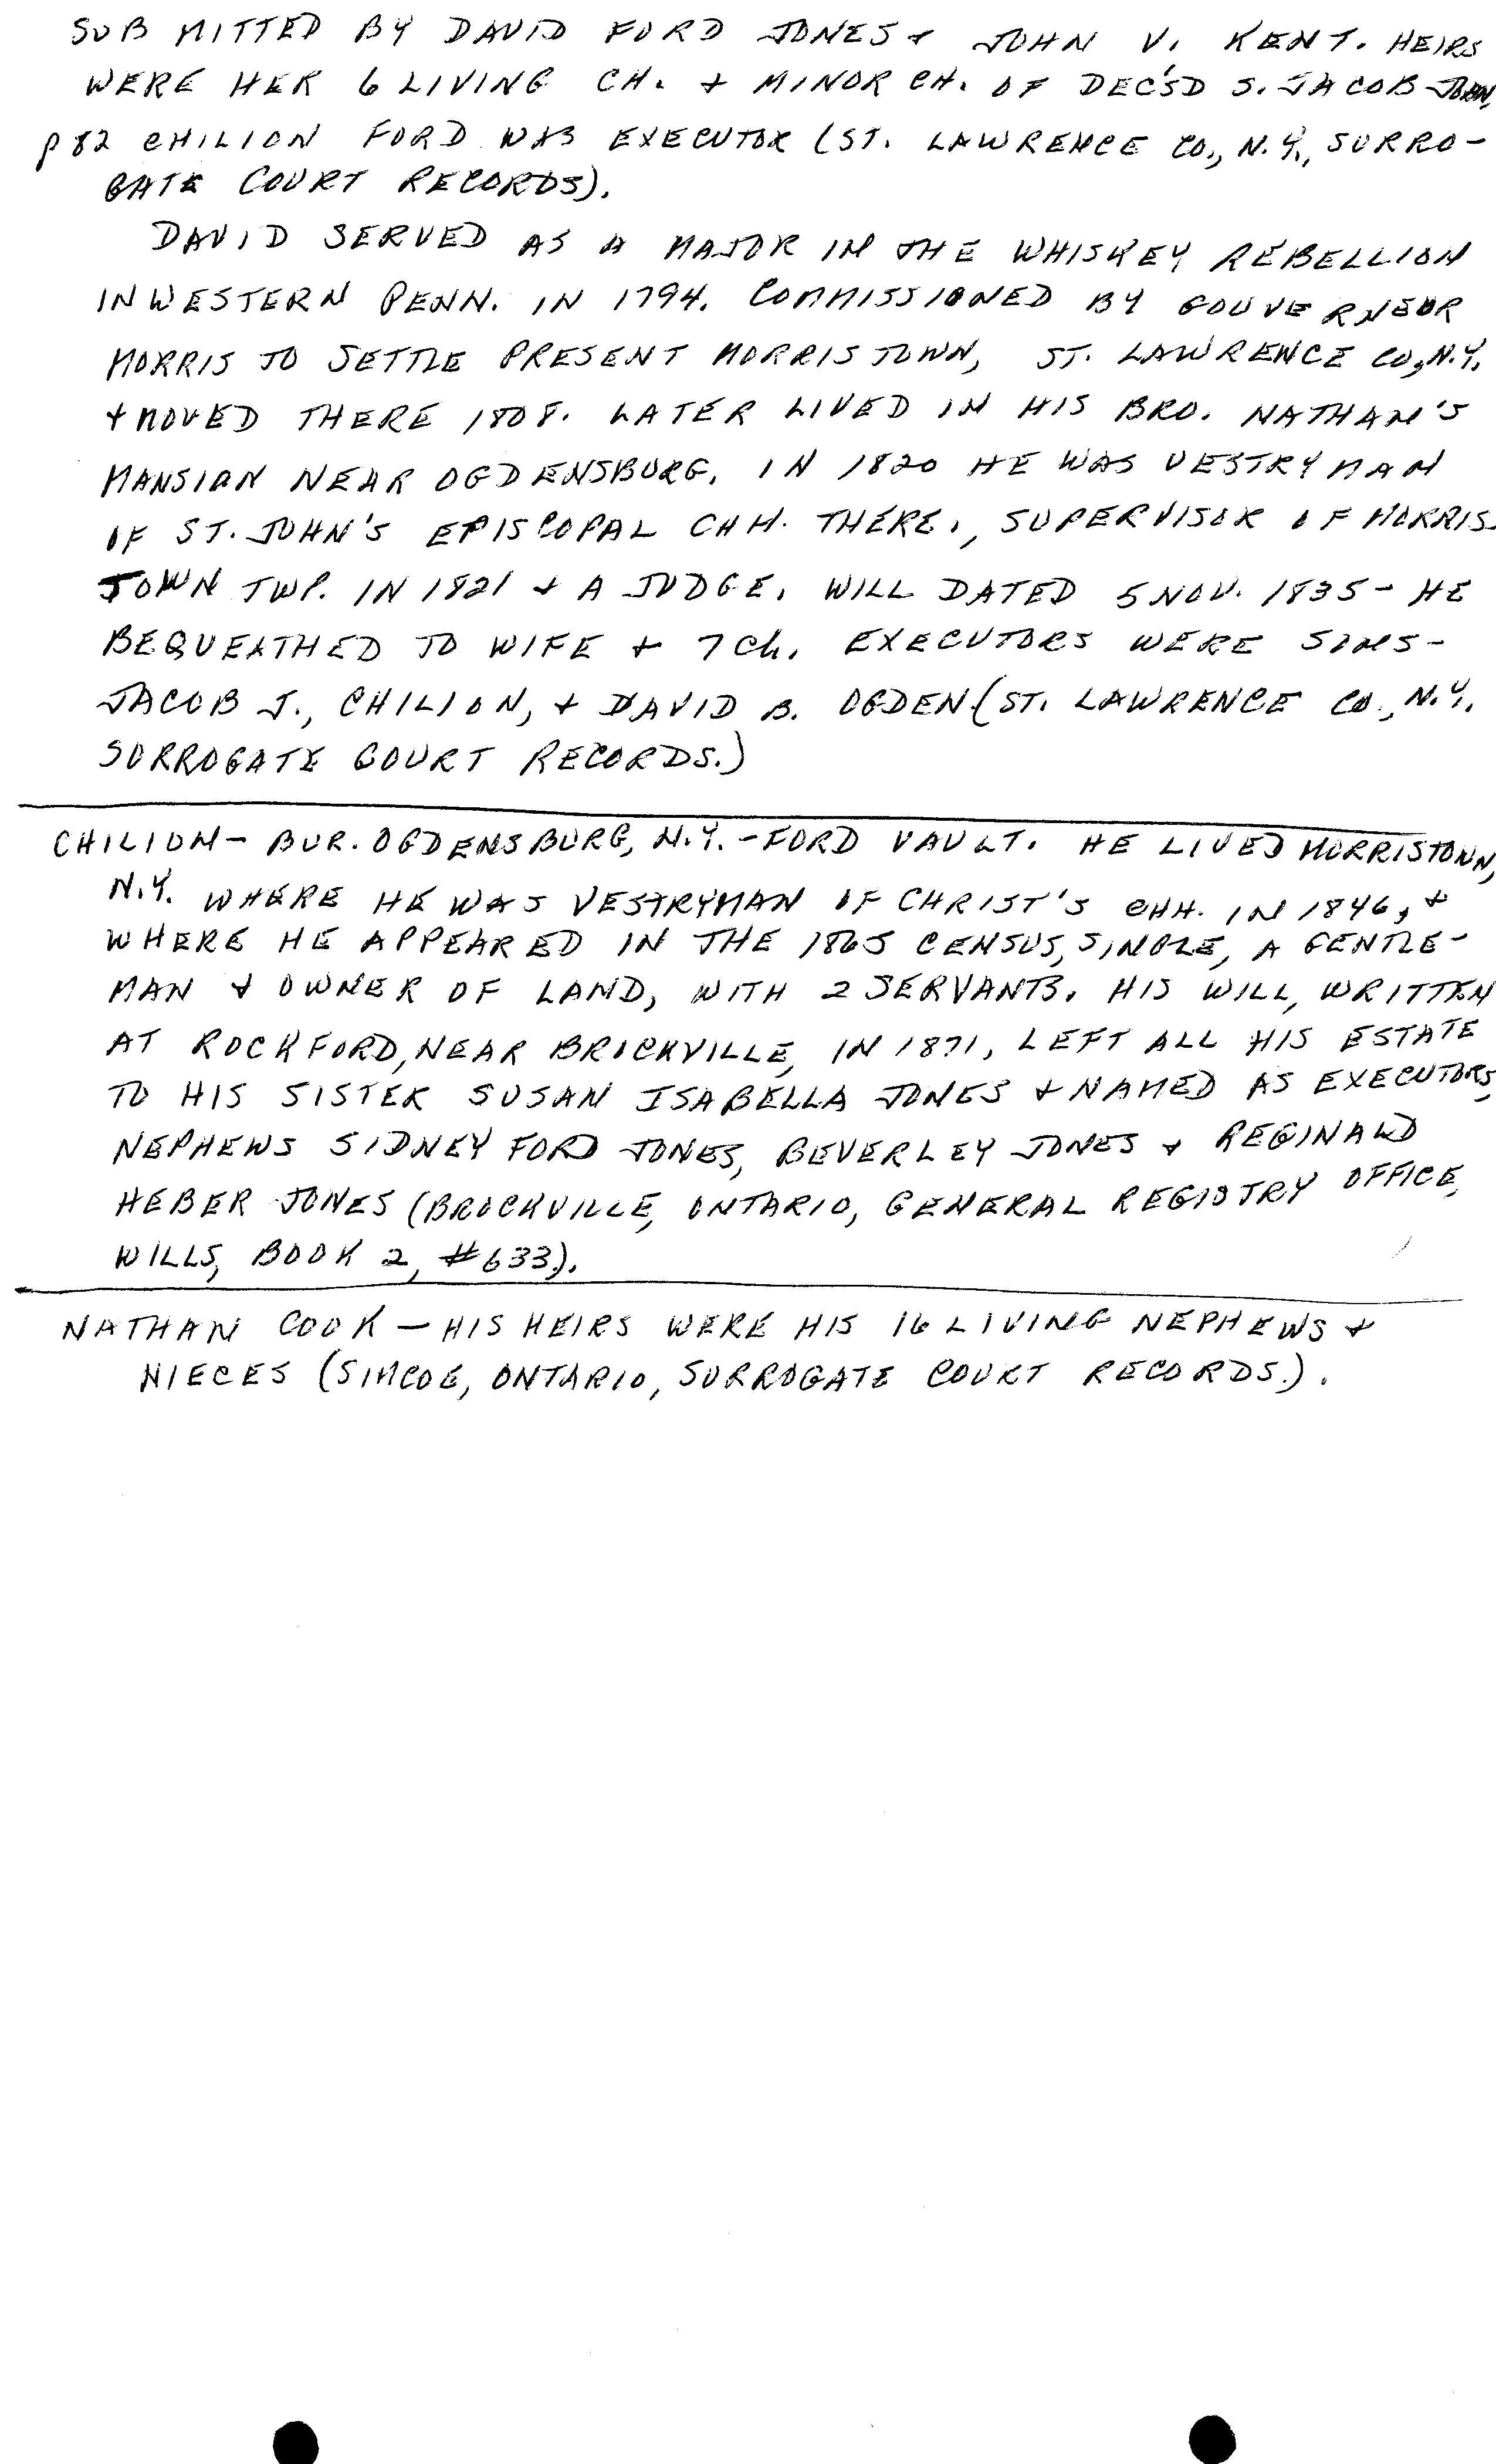 SUBMITTED BY DAVID FORD JONES + JOHN V. KENT. HEIRS
WERE HER 6 LIVING CH. + MINOR CH. OF DEC'S'D S. JACOB JOHN,
p 82 CHILION FORD WAS EXECUTOR (ST. LAWRENCE CO., N.Y., SURRO-
GATE COURT RECORDS).
DAVID SERVED AS A MAJOR IN THE WHISKEY REBELLION
IN WESTERN PENN. IN 1794. COMMISSIONED BY GOUVERNEUR
MORRIS TO SETTLE PRESENT MORRISTOWN, ST. LAWRENCE CO., N.Y.
+ MOVED THERE 1808. LATER LIVED IN HIS BRO. NATHAN'S
MANSION NEAR OGDENSBURG. IN 1820 HE WAS VESTRYMAN
OF ST. JOHN'S EPISCOPAL CHH. THERE., SUPERVISOR OF MORRIS-
TOWN TWP. IN 1821 + A JUDGE. WILL DATED 5 NOV. 1835 - HE
BEQUEATHED TO WIFE + 7 Ch. EXECUTORS WERE SONS-
JACOB J., CHILION, + DAVID B. OGDEN (ST. LAWRENCE CO., N.Y.
SURROGATE COURT RECORDS.)
CHILION - BUR. OGDENSBURG, N.Y. - FORD VAULT. HE LIVED MORRISTOWN,
N.Y. WHERE HE WAS VESTRYMAN OF CHRIST'S CHH. IN 1846, +
WHERE HE APPEARED IN THE 1865 CENSUS, SINGLE, A GENTLE-
MAN + OWNER OF LAND, WITH 2 SERVANTS. HIS WILL, WRITTEN
AT ROCKFORD, NEAR BROCKVILLE, IN 1871, LEFT ALL HIS ESTATE
TO HIS SISTER SUSAN ISABELLA JONES + NAMED AS EXECUTORS,
NEPHEWS SIDNEY FORD JONES, BEVERLEY JONES + REGINALD
HEBER JONES (BROCKVILLE, ONTARIO, GENERAL REGISTRY OFFICE,
WILLS, BOOK 2, #633).
NATHAN COOK - HIS HEIRS WERE HIS 16 LIVING NEPHEWS +
NIECES (SIMCOE, ONTARIO, SURROGATE COURT RECORDS.).